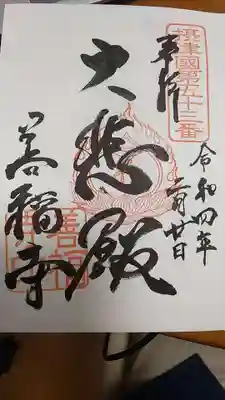 摂津國第五十三番
奉拝
令和四年
月廿日
大悲殿
善福寺